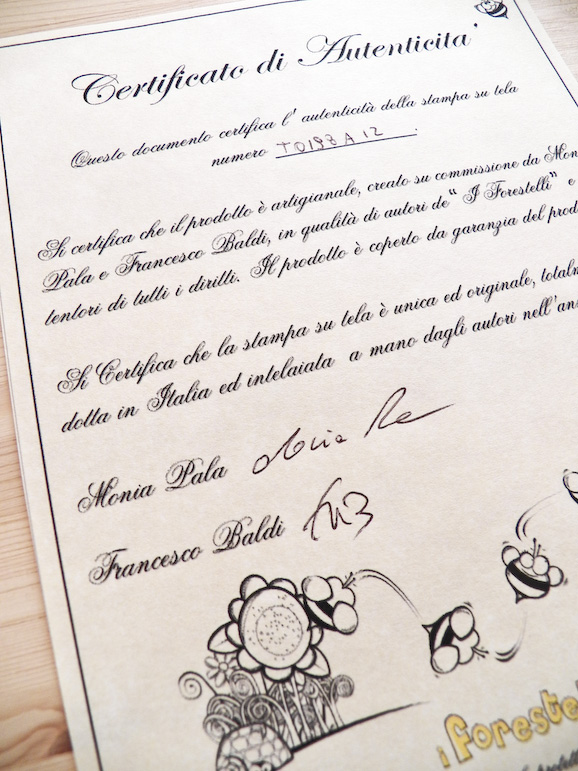 Certificato di Autenticita'
Questo documento certifica l' autenticità della stampa su tela
numero T0198A12.
Si certifica che il prodotto è artigianale, creato su commissione da
Pala e Francesco Baldi, in qualità di autori de "I Forestelli" e
tentori di tutti i diritti. Il prodotto è coperto da garanzia del
Si Certifica che la stampa su tela è unica ed originale,
dotta in Italia ed intelaiata a mano dagli autori
Monia Pala
Francesco Baldi
i